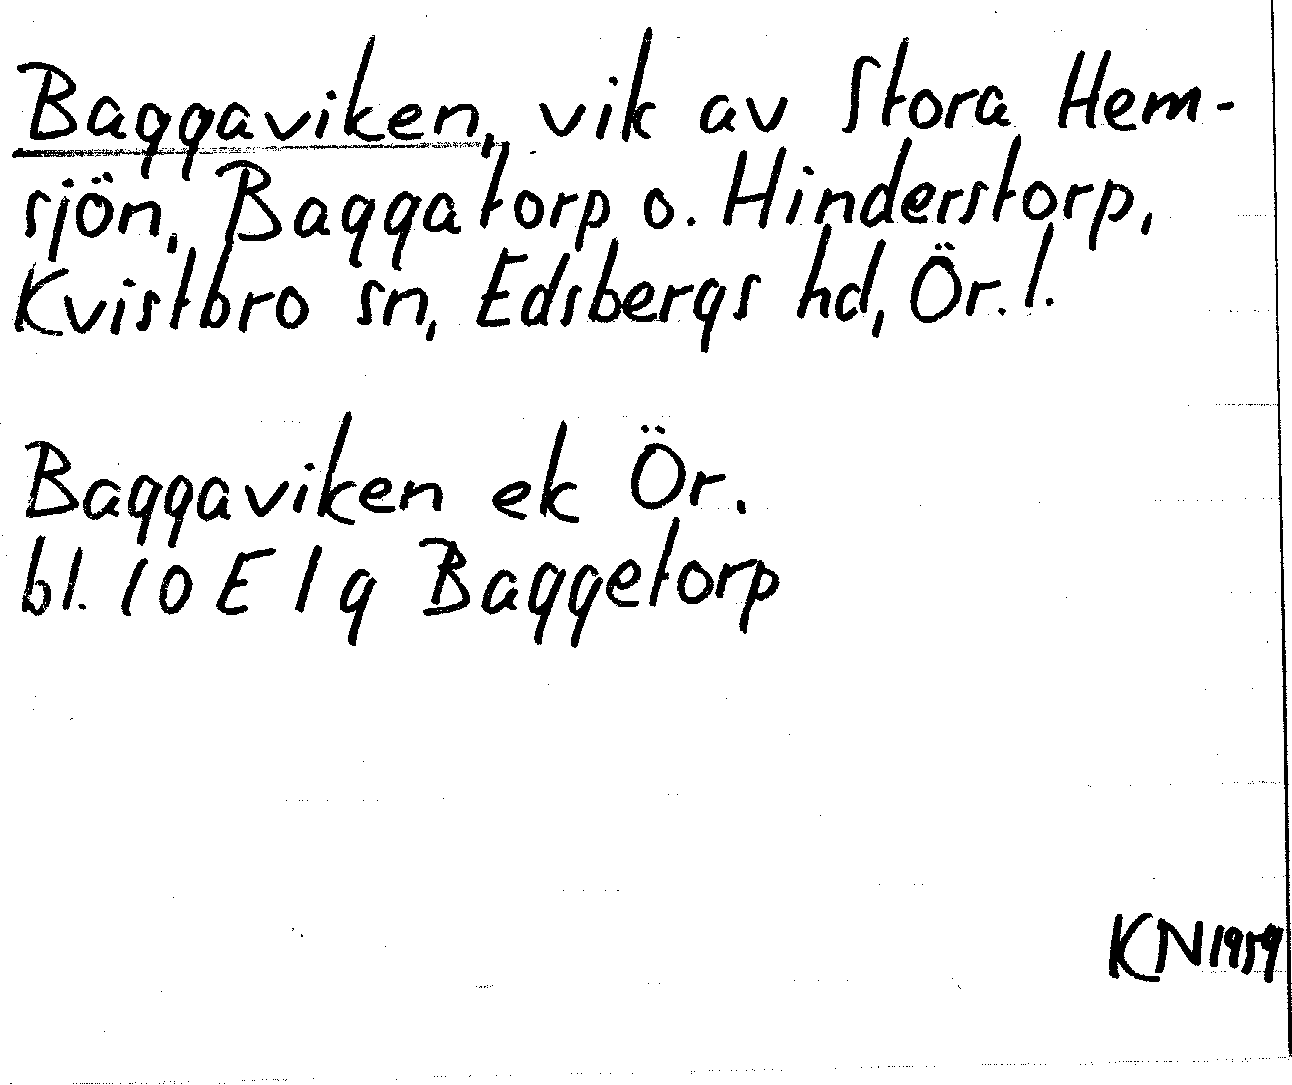 Baggaviken, vik av Stora Hem-
sjön, Baggatorp o. Hinderstorp,
Kvistbro sn, Edsbergs hd, Ör. l.
Baggaviken ek Ör.
bl. 10 E 1 g Baggetorp
KN 1959